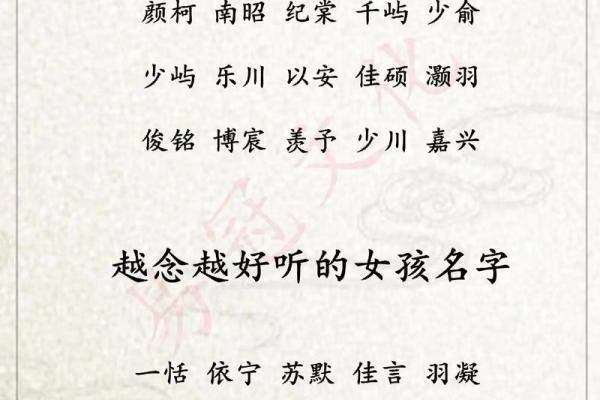 颜柯 南昭 纪棠 千屿 少俞
少屿 乐川 以安 佳硕 灏羽
俊铭 博宸 羡予 少川 嘉兴
越念越好听的女孩名字
一恬 依宁 苏默 佳言 羽凝
易冠文化